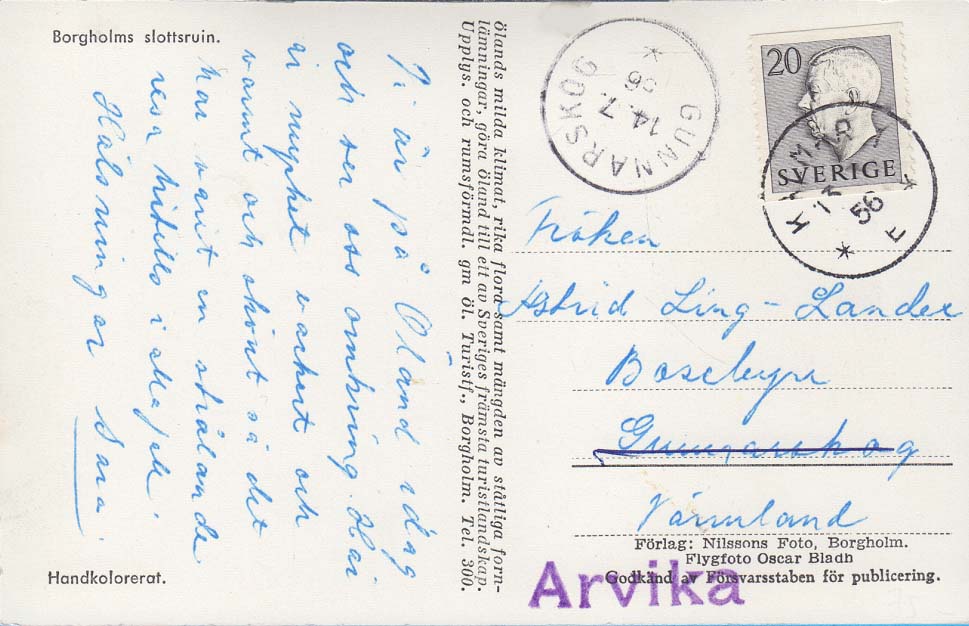 Borgholms slottsruin.
Vi är på Öland idag
och ser oss omkring. Har
ej mycket vackert och
varmt och skönt så det
har varit en strålande
resa hitills i
Hälsningar
Handkolorerat.
Ölands milda klimat, rika flora samt mängden av ståtliga forn-
lämningar, göra Öland till ett av Sveriges främsta turistlandskap.
Upplys. och rumsförmdl. gm öl. Turistf., Borgholm. Tel. 300.
GUNNARSKOG
14.7.
56
*
20
SVERIGE
KALMAR
13
56
* E *
Fröken
Astrid Ling-Lander
Bosebyn
Gunnarskog
Värmland
Förlag: Nilssons Foto, Borgholm.
Flygfoto Oscar Bladh
Godkänd av Försvarsstaben för publicering.
Arvika